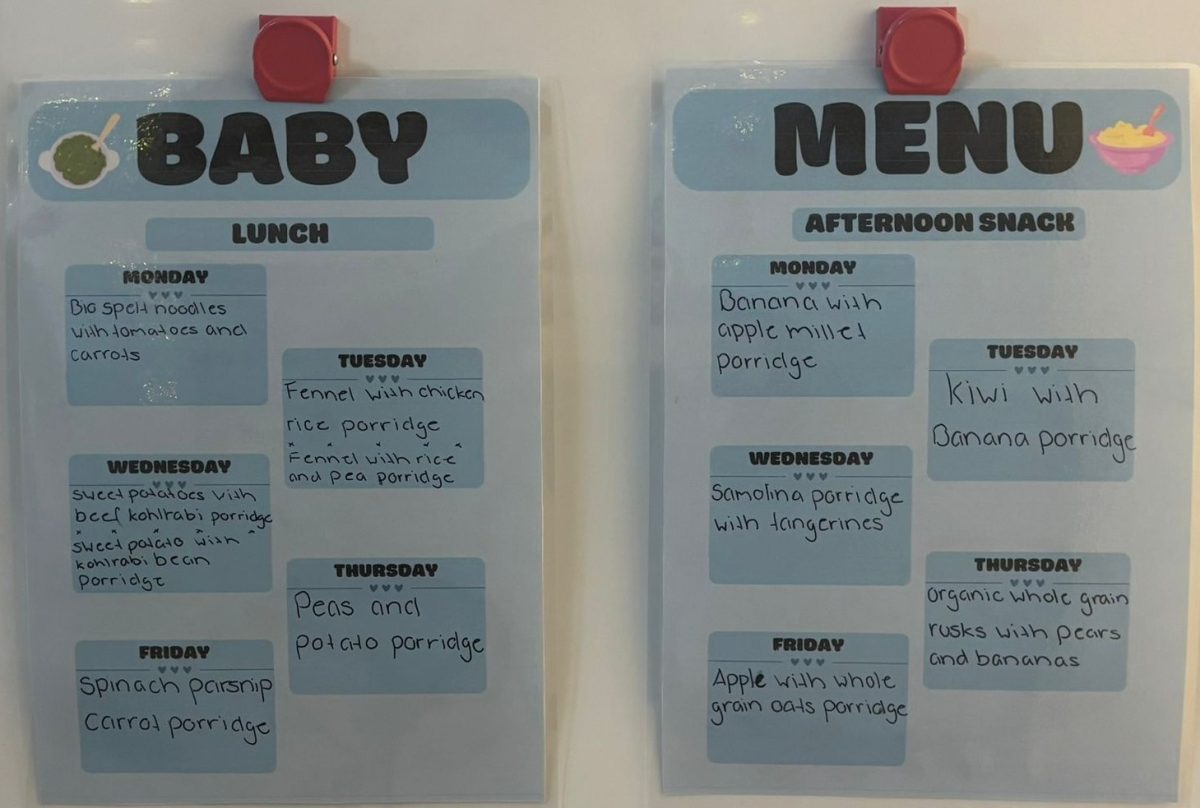 BABY
LUNCH
MONDAY
Bio spelt noodles
with tomatoes and
carrots
TUESDAY
Fennel with chicken
rice porridge
Fennel with rice
and pea porridge
WEDNESDAY
sweet potatoes with
beef kohlrabi porridge
sweet potato with
kohlrabi bean
porridge
THURSDAY
Peas and
potato porridge
FRIDAY
Spinach parsnip
carrot porridge
MENU
AFTERNOON SNACK
MONDAY
Banana with
apple millet
porridge
TUESDAY
Kiwi with
Banana porridge
WEDNESDAY
Samolina porridge
with tangerines
THURSDAY
organic whole grain
rusks with pears
and bananas
FRIDAY
Apple with whole
grain oats porridge